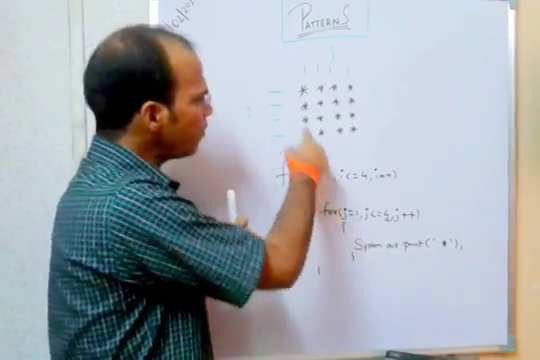 /02/20
PATTERNS
* * * *
* * * *
* * * *
* * *
f , i<=4, i++)
for(j=1, j<=4, j++)
{
System out print(" * "),
}